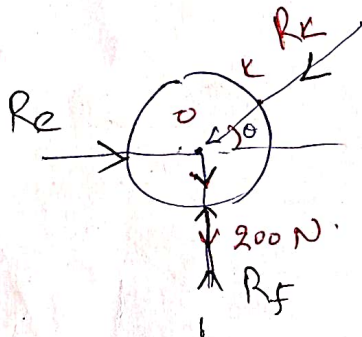 RK
K
Re
O
θ
200 N.
Rf